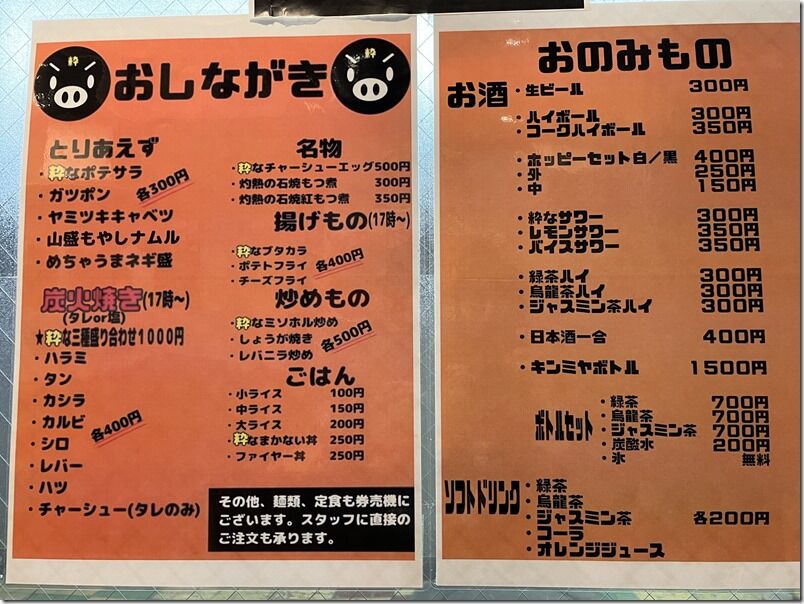 粋
おしながき
粋
とりあえず
・粋なポテサラ
・ガツポン
・ヤミツキキャベツ
・山盛もやしナムル
・めちゃうまネギ盛
各300円
炭火焼き(17時〜)
(タレor塩)
★粋な三種盛り合わせ1000円
・ハラミ
・タン
・カシラ
・カルビ
・シロ
・レバー
・ハツ
・チャーシュー(タレのみ)
各400円
名物
・粋なチャーシューエッグ500円
・灼熱の石焼もつ煮 300円
・灼熱の石焼紅もつ煮 350円
揚げもの(17時〜)
・粋なブタカラ
・ポテトフライ
・チーズフライ
各400円
炒めもの
・粋なミソホル炒め
・しょうが焼き
・レバニラ炒め
各500円
ごはん
・小ライス 100円
・中ライス 150円
・大ライス 200円
・粋なまかない丼 250円
・ファイヤー丼 250円
その他、麺類、定食も券売機に
ございます。スタッフに直接の
ご注文も承ります。
おのみもの
お酒
・生ビール 300円
・ハイボール 300円
・コークハイボール 350円
・ホッピーセット白/黒 400円
・外 250円
・中 150円
・粋なサワー 300円
・レモンサワー 350円
・バイスサワー 350円
・緑茶ハイ 300円
・烏龍茶ハイ 300円
・ジャスミン茶ハイ 300円
・日本酒一合 400円
・キンミヤボトル 1500円
ボトルセット
・緑茶 700円
・烏龍茶 700円
・ジャスミン茶 700円
・炭酸水 200円
・氷 無料
ソフトドリンク
・緑茶
・烏龍茶
・ジャスミン茶
・コーラ
・オレンジジュース
各200円